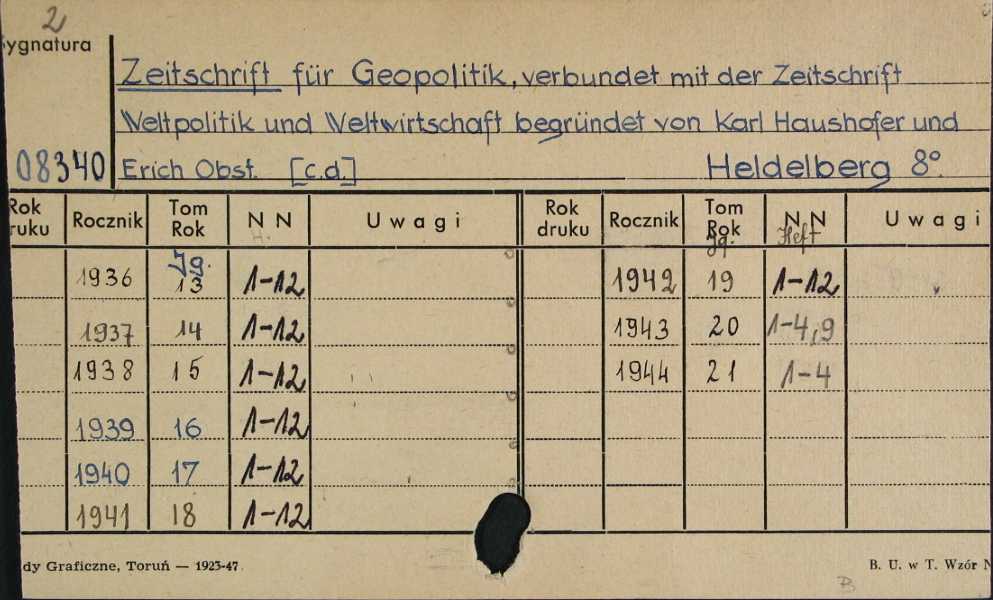 2
Sygnatura
Zeitschrift für Geopolitik, verbundet mit der Zeitschrift
Weltpolitik und Weltwirtschaft begründet von Karl Haushofer und
08340 Erich Obst. [c.d.] Heldelberg 8°.
Rok druku Rocznik Tom Rok N N Uwagi Rok druku Rocznik Tom Rok N N Uwagi
H. Jg. Heft
1936 Jg. 13 1-12 1942 19 1-12
1937 14 1-12 1943 20 1-4,9
1938 15 1-12 1944 21 1-4
1939 16 1-12
1940 17 1-12
1941 18 1-12
dy Graficzne, Toruń — 1923-47 B. U. w T. Wzór N
B